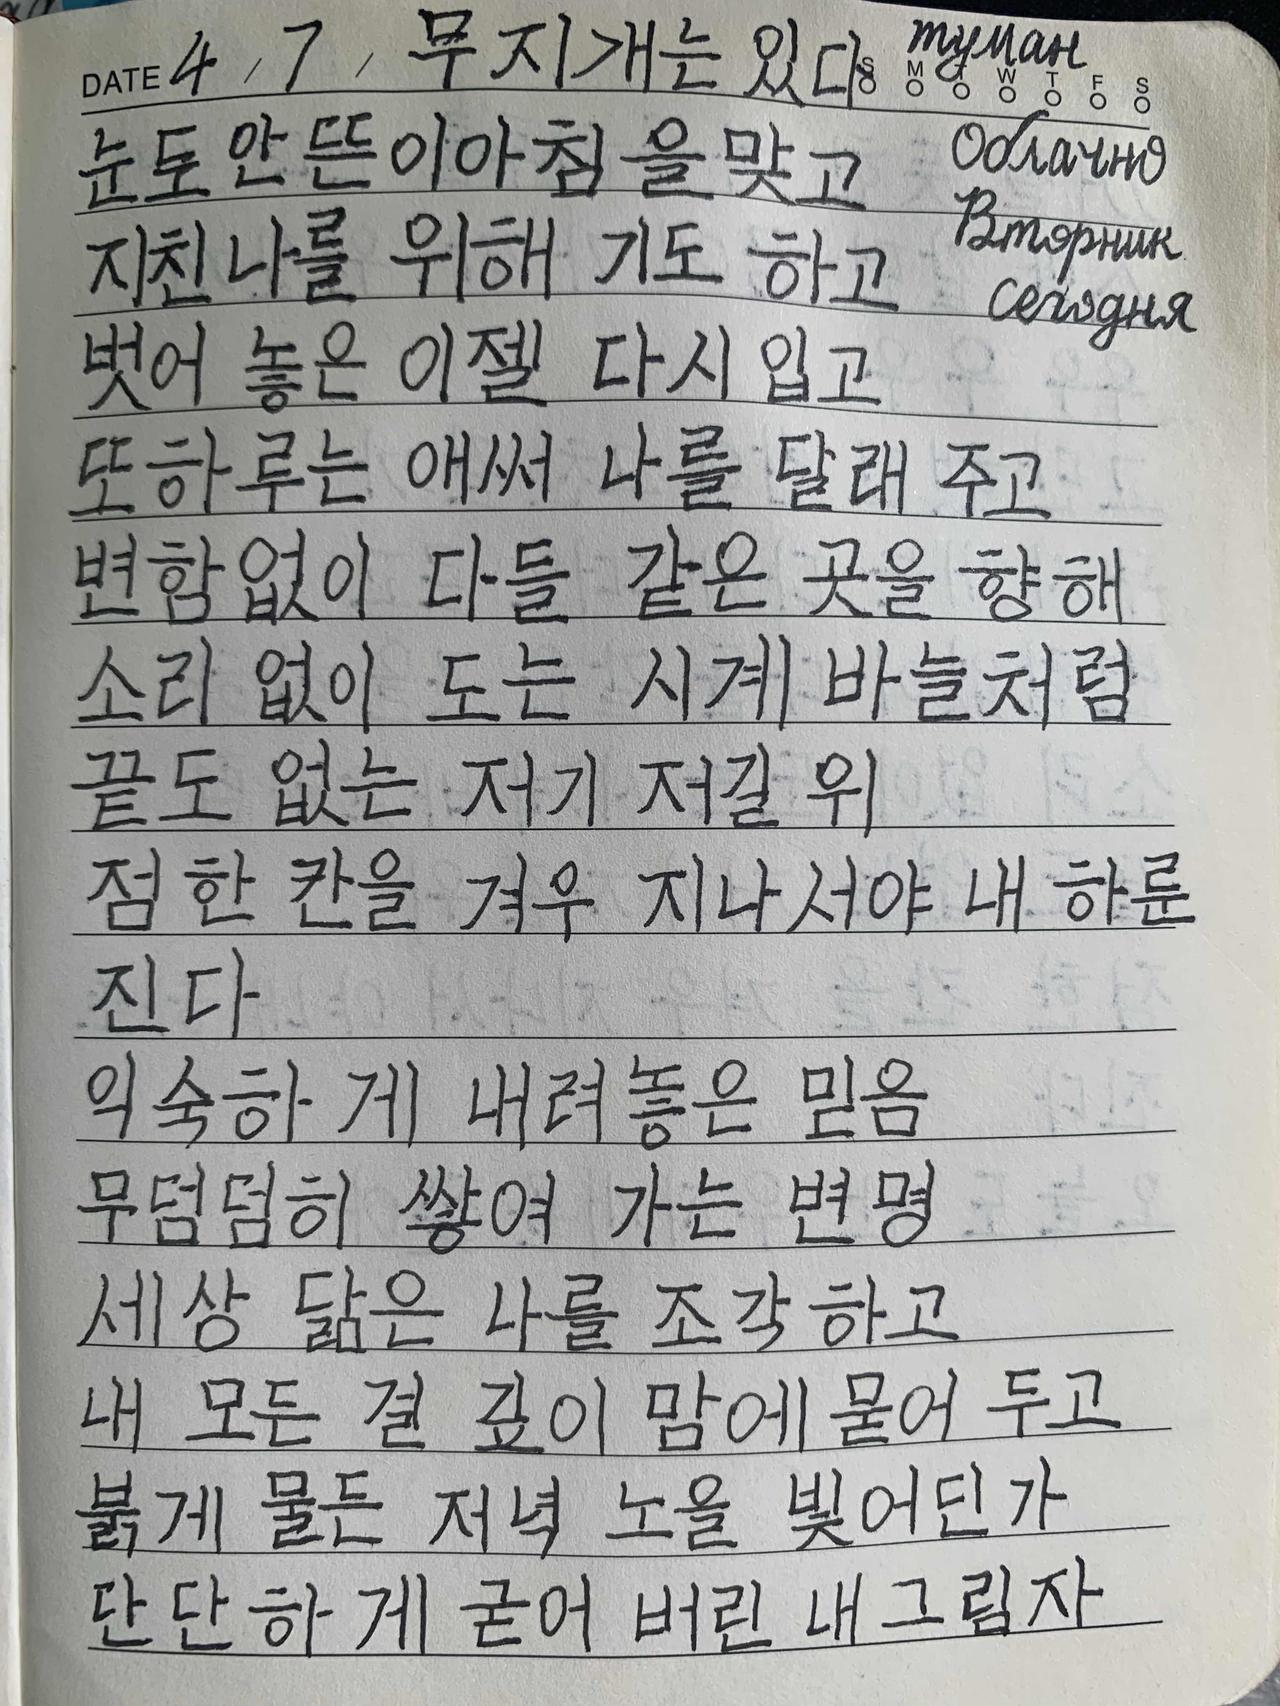 DATE 4 / 7 / 무지개는 있다 туман
S M T W T F S
눈도 안 뜬 이 아침을 맞고 облачно
지친 나를 위해 기도 하고 Вторник
сегодня
벗어 놓은 이젤 다시 입고
또 하루는 애써 나를 달래 주고
변함없이 다들 같은 곳을 향해
소리 없이 도는 시계 바늘처럼
끝도 없는 저기 저길 위
점 한 칸을 겨우 지나서야 내 하룬
진다
익숙하게 내려놓은 믿음
무덤덤히 쌓여 가는 변명
세상 닮은 나를 조각하고
내 모든 결 깊이 맘에 묻어 두고
붉게 물든 저녁 노을 빛 어딘가
단단하게 굳어 버린 내 그림자